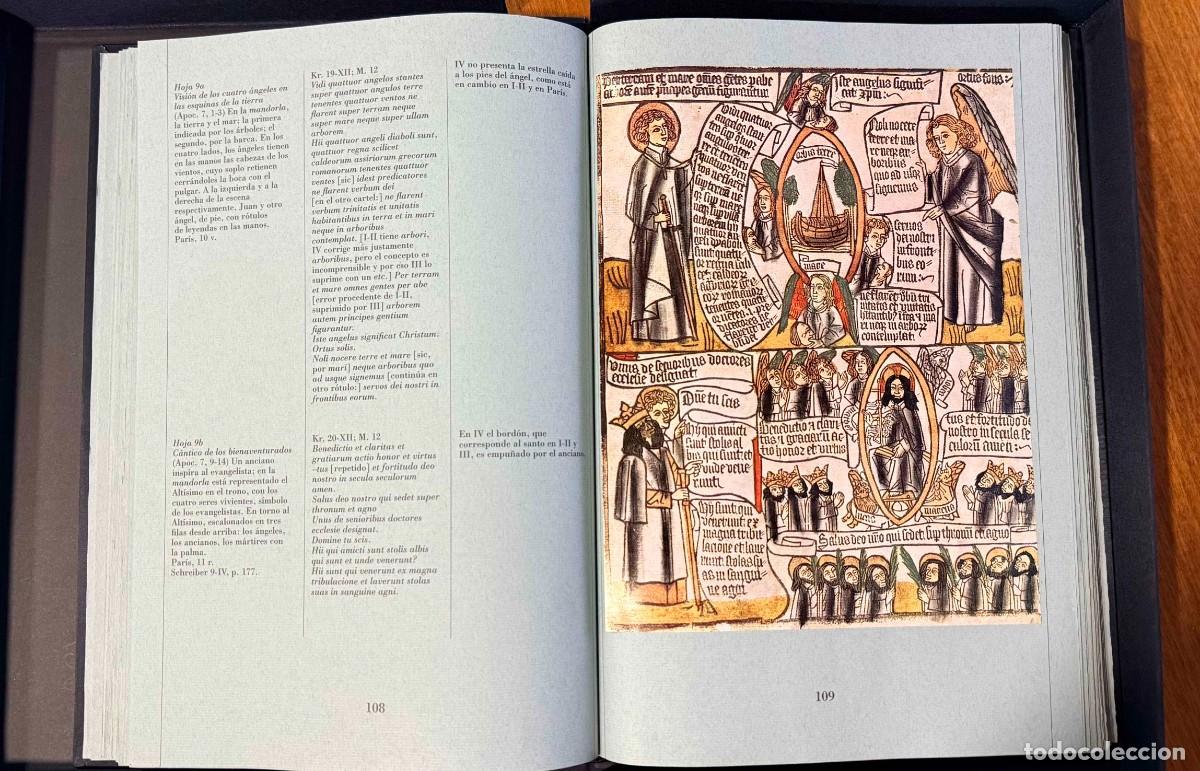 Hoja 9a
Visión de los cuatro ángeles en
las esquinas de la tierra
(Apoc. 7, 1-3) En la mandorla,
la tierra y el mar; la primera
indicada por los árboles; el
segundo, por la barca. En los
cuatro lados, los ángeles tienen
en las manos las cabezas de los
vientos, cuyo soplo retienen
cerrándoles la boca con el
pulgar. A la izquierda y a la
derecha de la escena
respectivamente. Juan y otro
ángel, de pie, con rótulos
de leyendas en las manos.
París, 10 v.
Kr. 19-XII; M. 12
Vidi quattuor angelos stantes
super quattuor angulos terre
tenentes quattuor ventos ne
flarent super terram neque
super mare neque super ullam
arborem
Hii quattuor angeli diaboli sunt,
quattuor regna scilicet
caldeorum assiriorum grecorum
romanorum tenentes quattuor
ventes [sic] idest predicatores
ne flarent verbum dei
[en el otro cartel:] ne flarent
verbum trinitatis et unitatis
habitantibus in terra et in mari
neque in arboribus
contemplat. [I-II tiene arbori,
IV corrige más justamente
arboribus, pero el concepto es
incomprensible y por eso III lo
suprime con un etc.] Per terram
et mare omnes gentes per abe
[error procedente de I-II,
suprimido por III] arborem
autem principes gentium
figurantur.
Iste angelus significat Christum.
Ortus solis.
Noli nocere terre et mare [sic,
por mari] neque arboribus quo
ad usque signemus [continúa en
otro rótulo:] servos dei nostri in
frontibus eorum.
IV no presenta la estrella caída
a los pies del ángel, como está
en cambio en I-II y en París.
Hoja 9b
Cántico de los bienaventurados
(Apoc. 7, 9-14) Un anciano
inspira al evangelista; en la
mandorla está representado el
Altísimo en el trono, con los
cuatro seres vivientes, símbolo
de los evangelistas. En torno al
Altísimo, escalonados en tres
filas desde arriba: los ángeles,
los ancianos, los mártires con
la palma.
París, 11 r.
Schreiber 9-IV, p. 177.
Kr. 20-XII; M. 12
Benedictio et claritas et
gratiarum actio honor et virtus
-tus [repetido] et fortitudo deo
nostro in secula seculorum
amen.
Salus deo nostro qui sedet super
thronum et agno
Unus de senioribus doctores
ecclesie designat.
Domine tu scis.
Hii qui amicti sunt stolis albis
qui sunt et unde venerunt?
Hii sunt qui venerunt ex magna
tribulacione et laverunt stolas
suas in sanguine agni.
En IV el bordón, que
corresponde al santo en I-II y
III, es empuñado por el anciano.
108
Iste angelus signifi-
cat
Noli nocere
terre et ma
re
arboribus
quo ad usque
signemus
servos
dei nostri
in fronti
bus eo
rum
orbis terre
mare
Unus de senioribus doctores
ecclesie designat
Dne tu scis
Hy qui amicti
sunt stolis al
bis qui sunt et
unde vene
runt
Hy sunt qui
venerunt ex
magna tribu
lacione et lave
runt stolas su
as in sangui
ne agni
Benedictio et clari
tas et graciarum ac
tio honor et virtus
tus et fortitudo deo
nostro in secula se
culorum amen
Salus deo nro qui sedet sup thronum et agno
109
todocoleccion